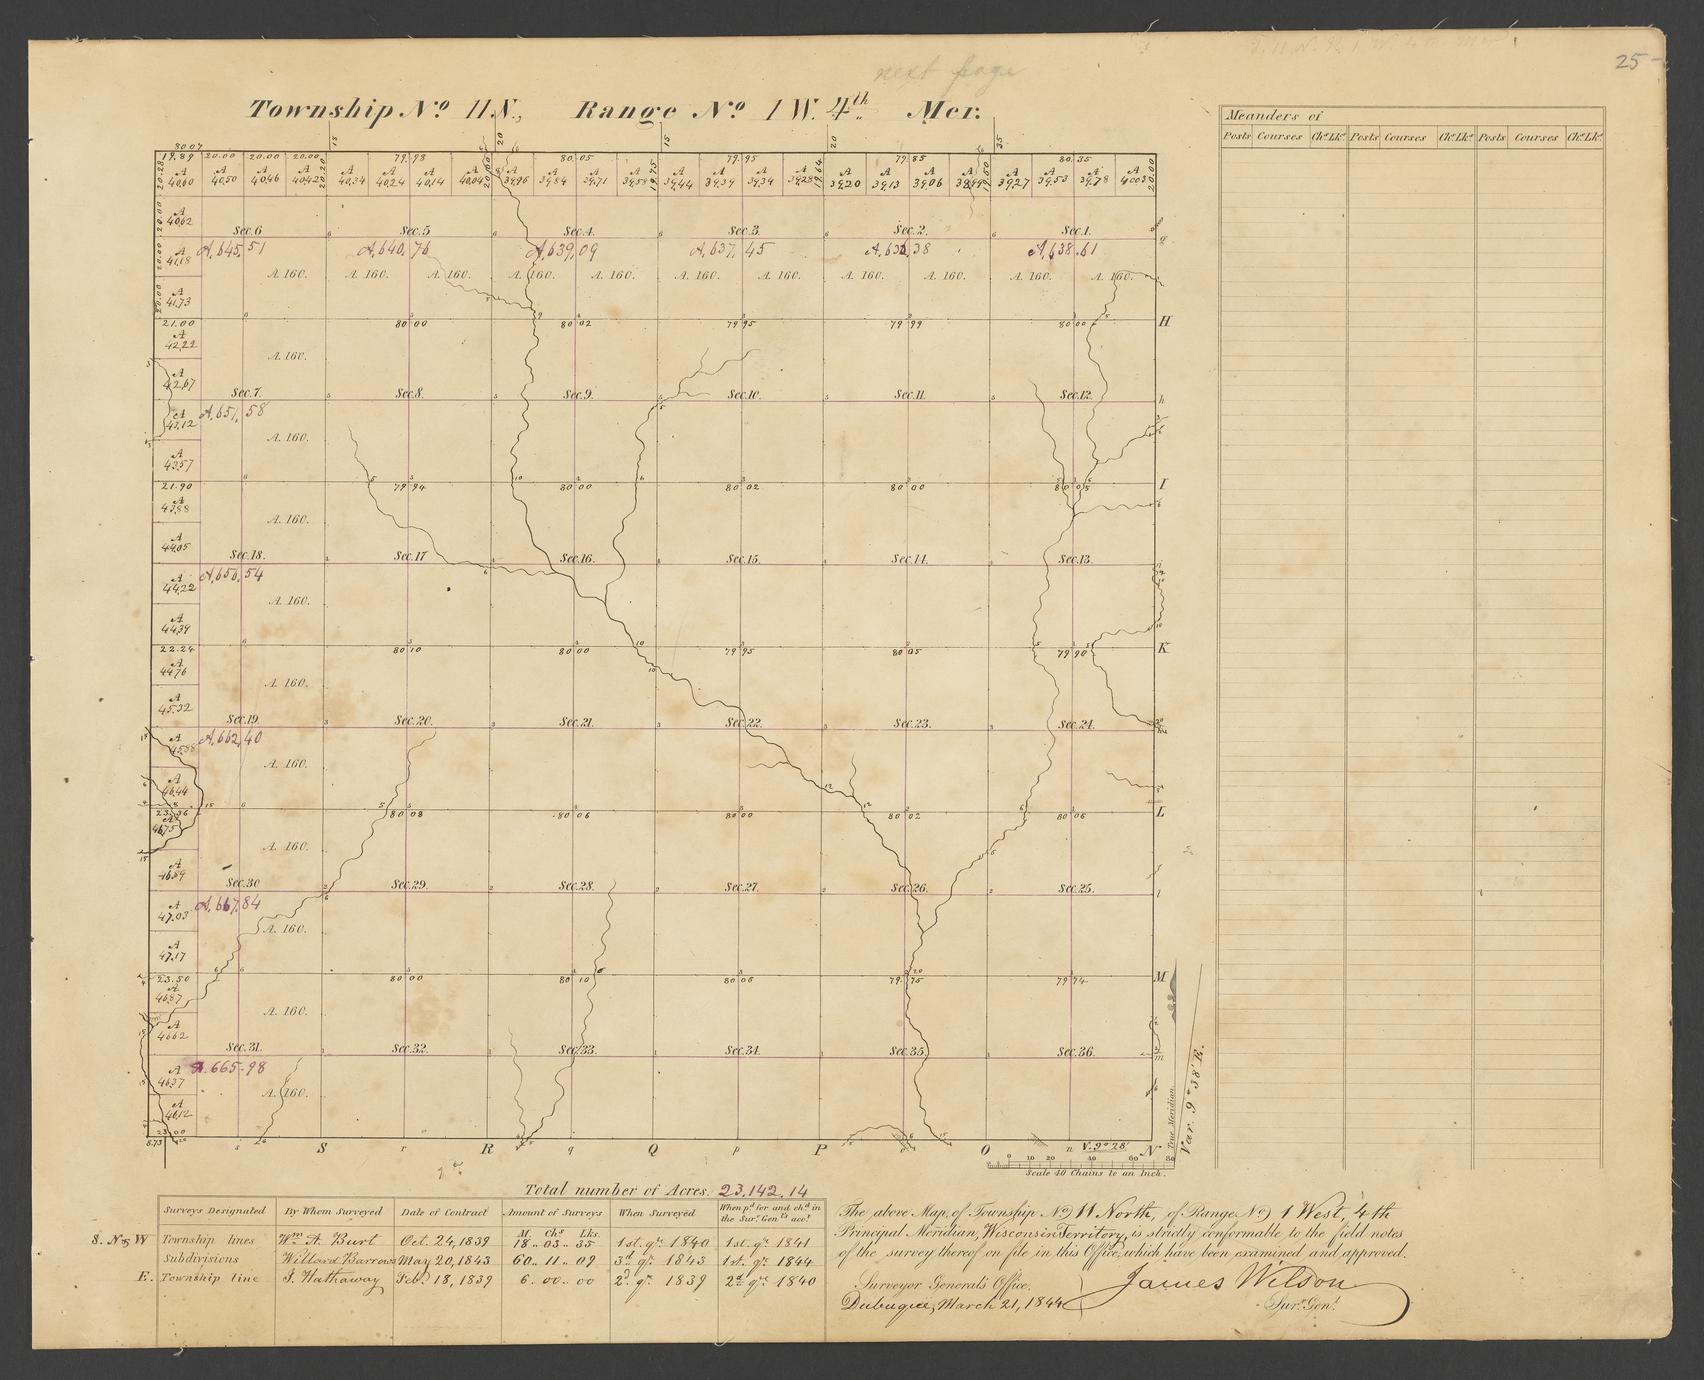 next page
25
Township No 11 N., Range No 1 W. 4th Mer.
Meanders of
Posts Courses Chs. Lks. Posts Courses Chs. Lks. Posts Courses Chs. Lks.
18 20 15 20 35
80.07
19.89 20.00 20.00 20.00 79.98 80.05 79.95 79.85 80.35
A A A A A A A A A A A A A A A A A A A A A A A A
40,60 40,50 40,46 40,42 40,34 40,24 40,14 40,04 39,96 39,84 39,71 39,58 39,44 39,39 39,34 39,28 39,20 39,13 39,06 38,99 39,27 39,53 39,78 40,03
A
40,62
Sec. 6 Sec. 5 Sec. 4. Sec. 3. Sec. 2. Sec. 1.
A. 645,51 A. 640,76 A. 639,09 A. 637,45 A. 636,38 A. 638.61
A
41,18
A. 160. A. 160. A. 160. A. 160. A. 160. A. 160. A. 160. A. 160. A. 160. A. 160. A. 160.
A
41,73
21.00 80 00 80 02 79 95 79 99 80 00 H
A
42,22
A. 160.
A
42,67
Sec. 7. Sec. 8. Sec. 9. Sec. 10. Sec. 11. Sec. 12. h
A. 651,58
A
43,12
A. 160.
A
43,57
21.90 79 94 80 00 80 02 80 00 80 05 I
A
43,88
A. 160.
A
44,05
Sec. 18. Sec. 17 Sec. 16. Sec. 15. Sec. 14. Sec. 13.
A. 656,54
A
44,22
A. 160.
A
44,39
22.24 80 10 80 00 79 95 80 05 79 90 K
A
44,76
A. 160.
A
45,32
Sec. 19. Sec. 20. Sec. 21. Sec. 22. Sec. 23. Sec. 24.
A. 662,40
A
45,88
A. 160.
A
46,44
23.36 80 08 80 06 80 00 80 02 80 06 L
A
46,75
A. 160.
A
46,89
Sec. 30 Sec. 29. Sec. 28. Sec. 27. Sec. 26. Sec. 25. l
A. 667,84
A
47,03
A. 160.
A
47,17
23.50 80 00 80 10 80 06 79 75 79 74 M
A
46,87
A. 160.
A
46,62
Sec. 31. Sec. 32. Sec. 33. Sec. 34. Sec. 35. Sec. 36. m
A. 665.98
A
46,37
A. 160.
A
46,12
23.00
8.73 s S r R q Q p P O n V. 9° 28' N
True Meridian.
Var. 9° 38' E.
0 10 20 40 60 80
Scale 40 Chains to an Inch.
Total number of Acres. 23,142.14
Surveys Designated By Whom Surveyed Date of Contract Amount of Surveys When Surveyed When pd. for and chd. in the Sur. Genls acct
M. Chs. Lks.
S. N & W Township lines Wm. A. Burt Oct. 24, 1839 18 .. 03 .. 35 1st. qr. 1840 1st. qr. 1841
Subdivisions Willard Barrows May 20, 1843 60 .. 11 .. 09 3d. qr. 1843 1st. qr. 1844
E. Township line J. Hathaway Feb. 18, 1839 6 .. 00 .. 00 2d. qr. 1839 2d. qr. 1840
The above Map, of Township No) 11 North, of Range No) 1 West, 4th
Principal Meridian, Wisconsin Territory, is strictly conformable to the field notes
of the survey thereof on file in this Office, which have been examined and approved.
Surveyor General's Office,
Dubuque, March 21, 1844
James Wilson
Sur. Genl.